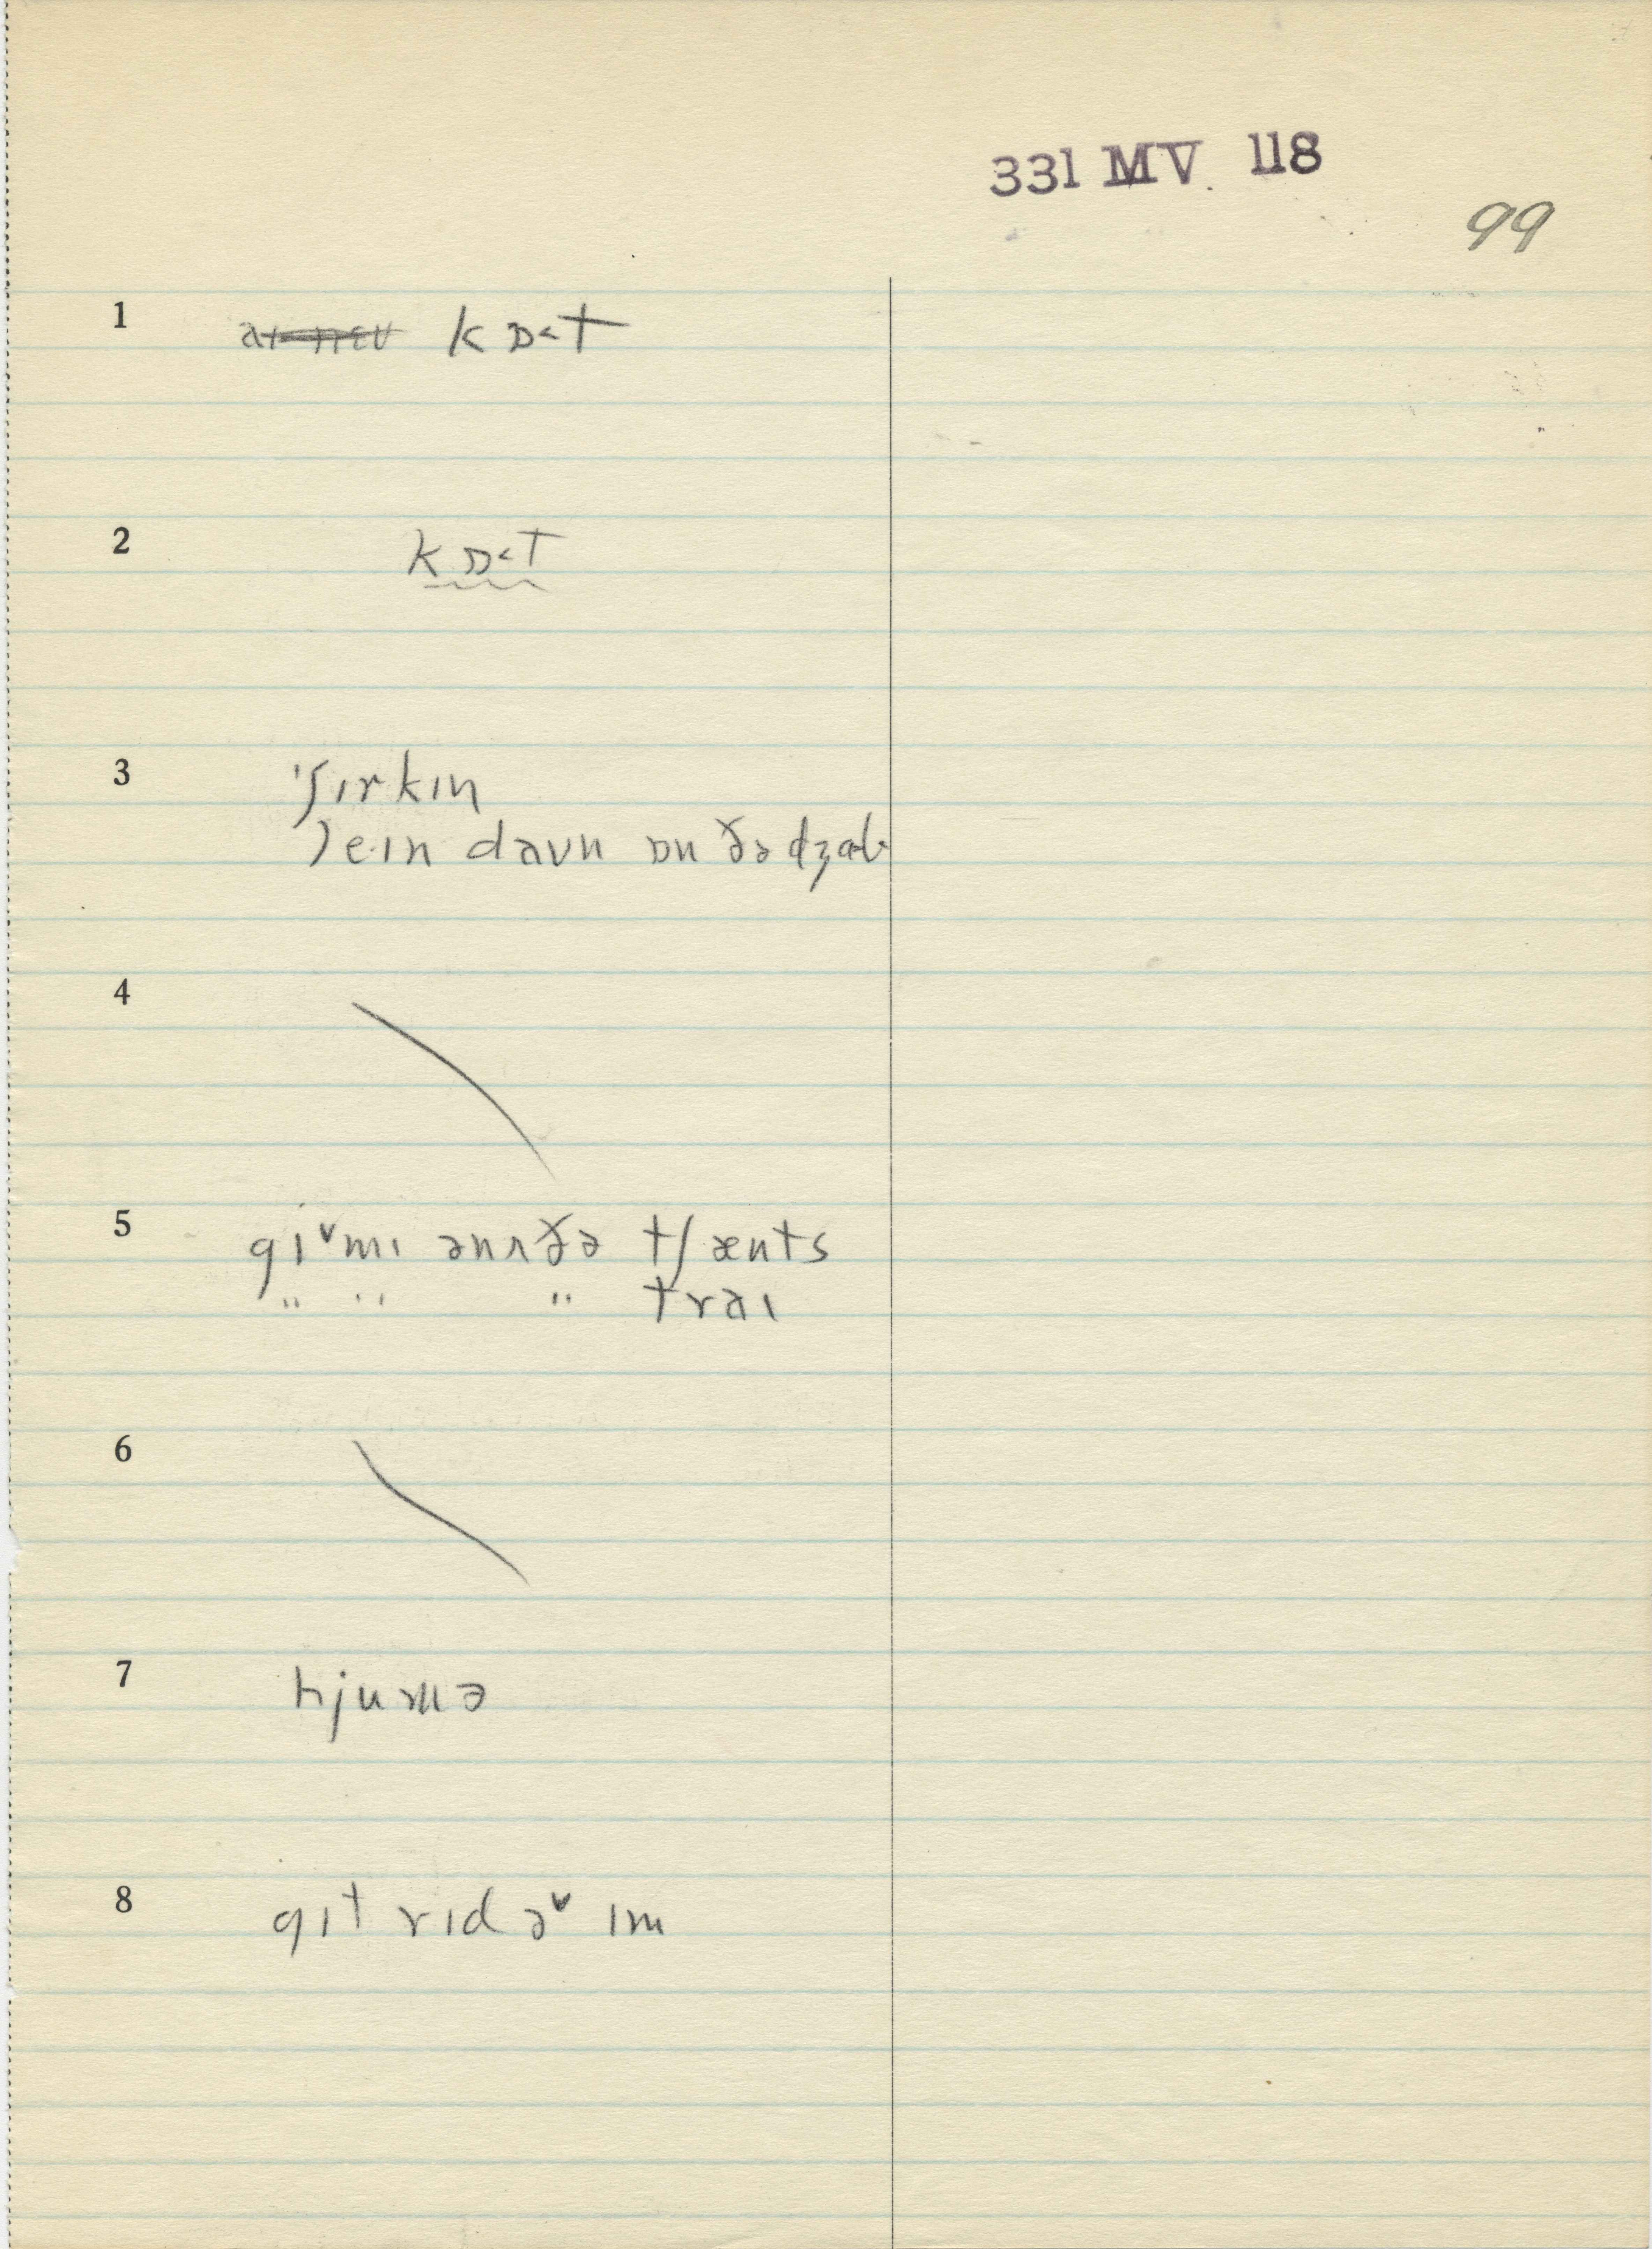 331 MV 118
99
1 kɒ˂t
2 kɒ˂t
3 ˈʃɪrkɪn
leɪn daʊn ɒn ðə dʒɑb
4
5 gɪᵛmɪ ənʌðə tʃænts
" " " traɪ
6
7 hjumə
8 gɪt rɪd əᵛ ɪm